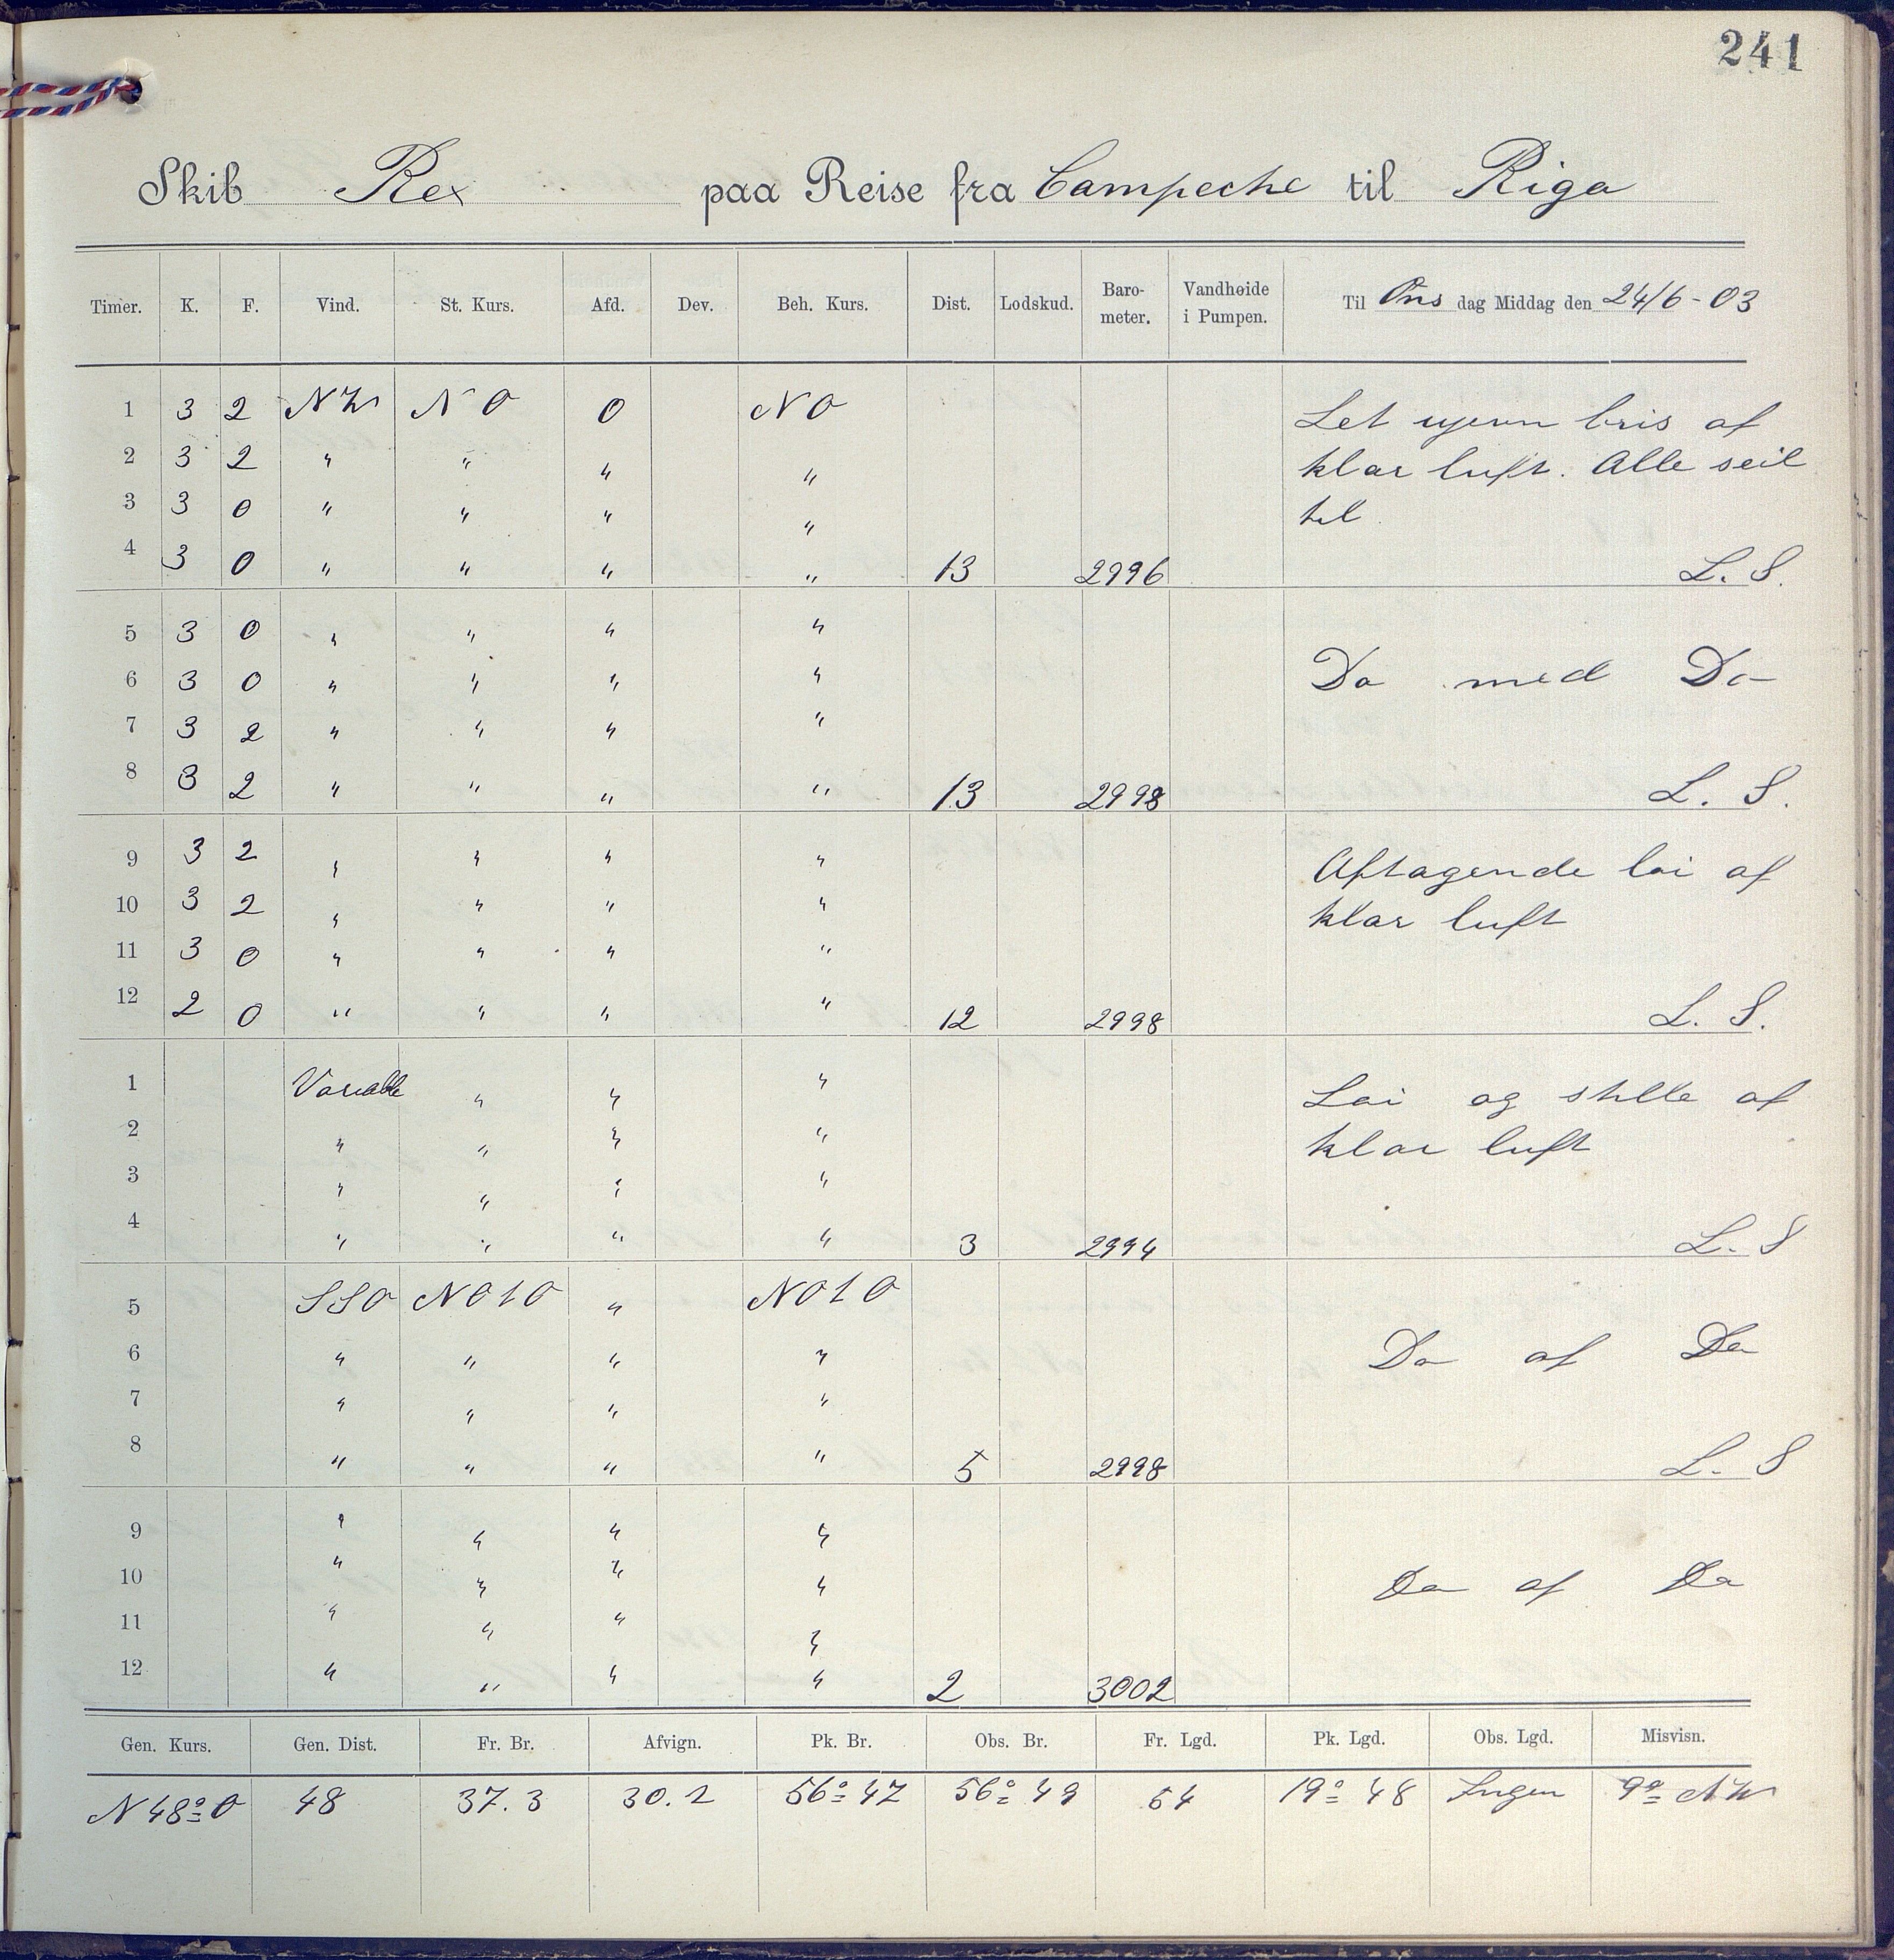 241
Skib Rex paa Reise fra Campeche til Riga
Timer. K. F. Vind. St. Kurs. Afd. Dev. Beh. Kurs. Dist. Lodskud. Baro-meter. Vandhøide i Pumpen. Til Ons dag Middag den 24/6-03
1 3 2 NW NO 0 NO Let ujevn bris af
2 3 2 " " " " klar luft. Alle seil
3 3 0 " " " " til
4 3 0 " " " " 13 2996 L. S.
5 3 0 " " " "
6 3 0 " " " " Do med Do
7 3 2 " " " "
8 3 2 " " " " 13 2998 L. S.
9 3 2 " " " " Aftagende lai af
10 3 2 " " " " klar luft
11 3 0 " " " "
12 2 0 " " " " 12 2998 L. S.
1 Variable " " " Lai og stille af
2 " " " " klar luft
3 " " " "
4 " " " " 3 2994 L. S
5 SSO NOtO " NOtO
6 " " " " Do af Do
7 " " " "
8 " " " " 5 2998 L. S
9 " " " "
10 " " " " Do af Do
11 " " " "
12 " " " " 2 3002
Gen. Kurs. Gen. Dist. Fr. Br. Afvign. Pk. Br. Obs. Br. Fr. Lgd. Pk. Lgd. Obs. Lgd. Misvisn.
N 48° O 48 37.3 30.2 56° 47 56° 49 54 19° 48 Ingen 9° NW